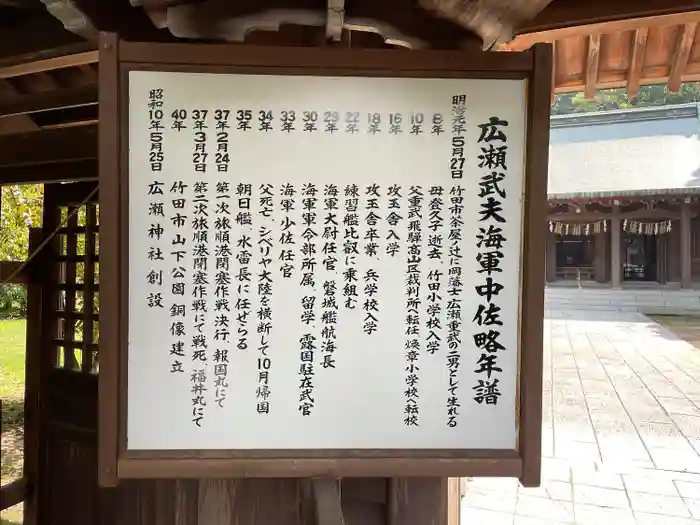 広瀬武夫海軍中佐略年譜
明治元年5月27日 竹田市茶屋ノ辻に岡藩士広瀬重武の二男として生れる
8年 母登久子逝去、竹田小学校入学
10年 父重武飛騨高山区裁判所へ転任 煥章小学校へ転校
16年 攻玉舎入学
18年 攻玉舎卒業、兵学校入学
22年 練習艦比叡に乗組む
29年 海軍大尉任官 磐城艦航海長
30年 海軍軍令部所属、留学、露国駐在武官
33年 海軍少佐任官
34年 父死亡、シベリヤ大陸を横断して10月帰国
35年 朝日艦、水雷長に任ぜらる
37年2月24日 第一次旅順港閉塞作戦決行、報国丸にて
37年3月27日 第二次旅順港閉塞作戦にて戦死、福井丸にて
40年 竹田市山下公園銅像建立
昭和10年5月25日 広瀬神社創設